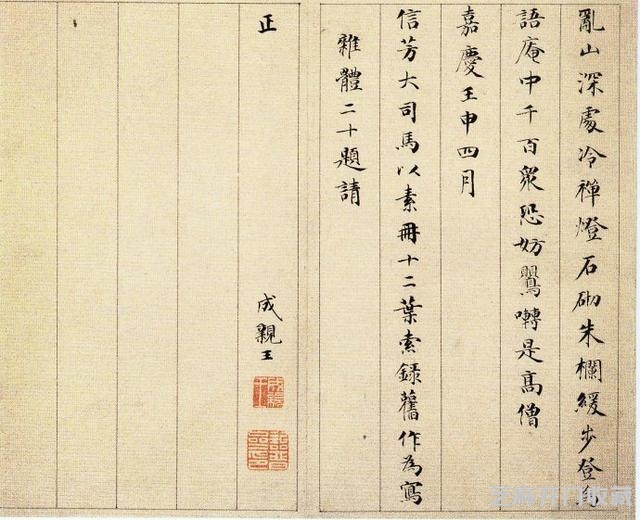 亂山深處冷禪燈石砌朱欄緩步登勿
語庵中千百衆恐妨鸎囀是高僧
嘉慶壬申四月
信芳大司馬以素冊十二葉索錄舊作為寫
雜體二十題請
正
成親王